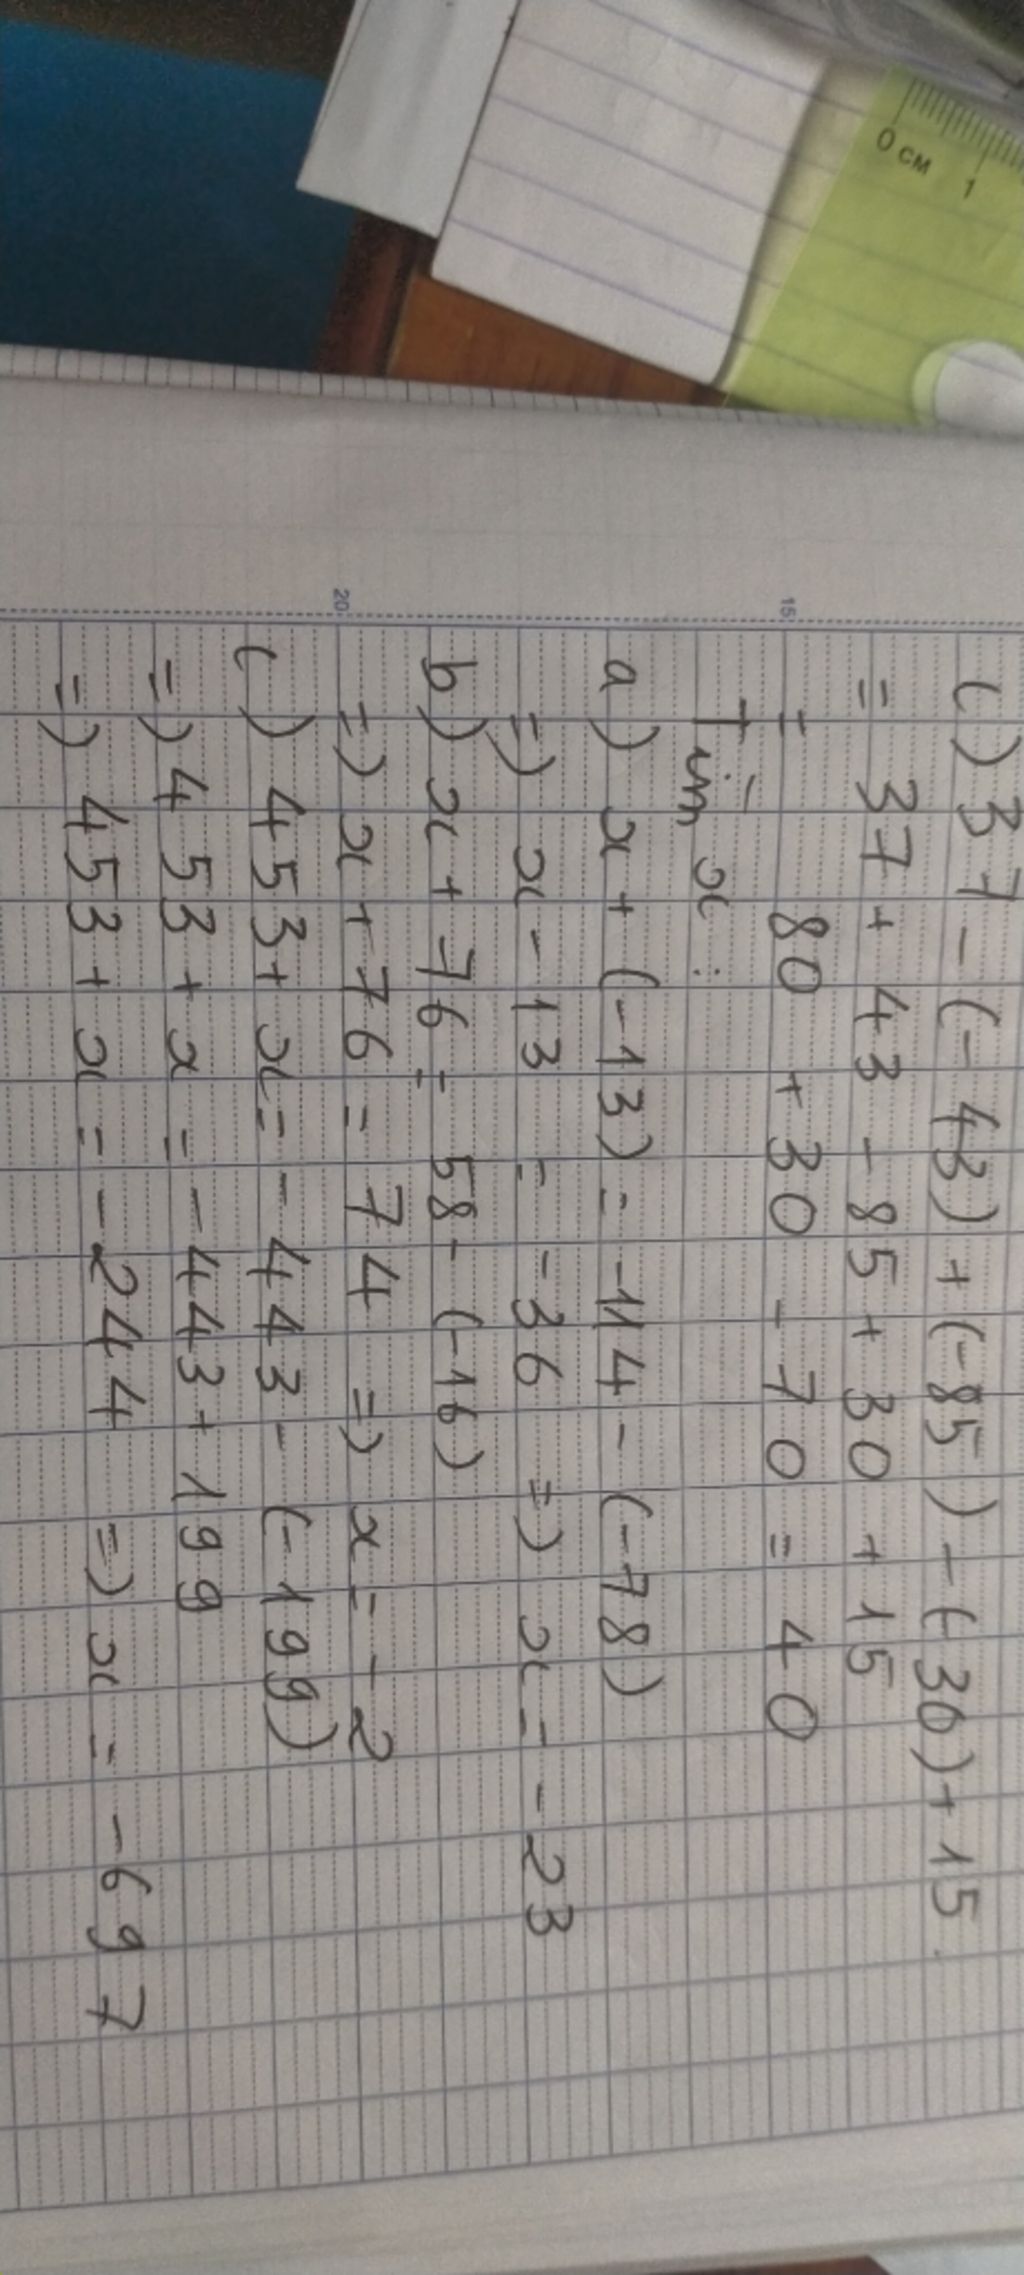 0 см 1
c) 37 - (-43) + (-85) - (-30) + 15.
= 37 + 43 - 85 + 30 + 15
15
= 80 + 30 - 70 = 40
Tìm x :
a) x + (-13) = -114 - (-78)
=) x - 13 = -36 =) x = -23
b) x + 76 = 58 - (-16)
20
=) x + 76 = 74 =) x = -2
c) 453 + x = -443 - (-199)
=) 453 + x = -443 + 199
=) 453 + x = -244 =) x = -697